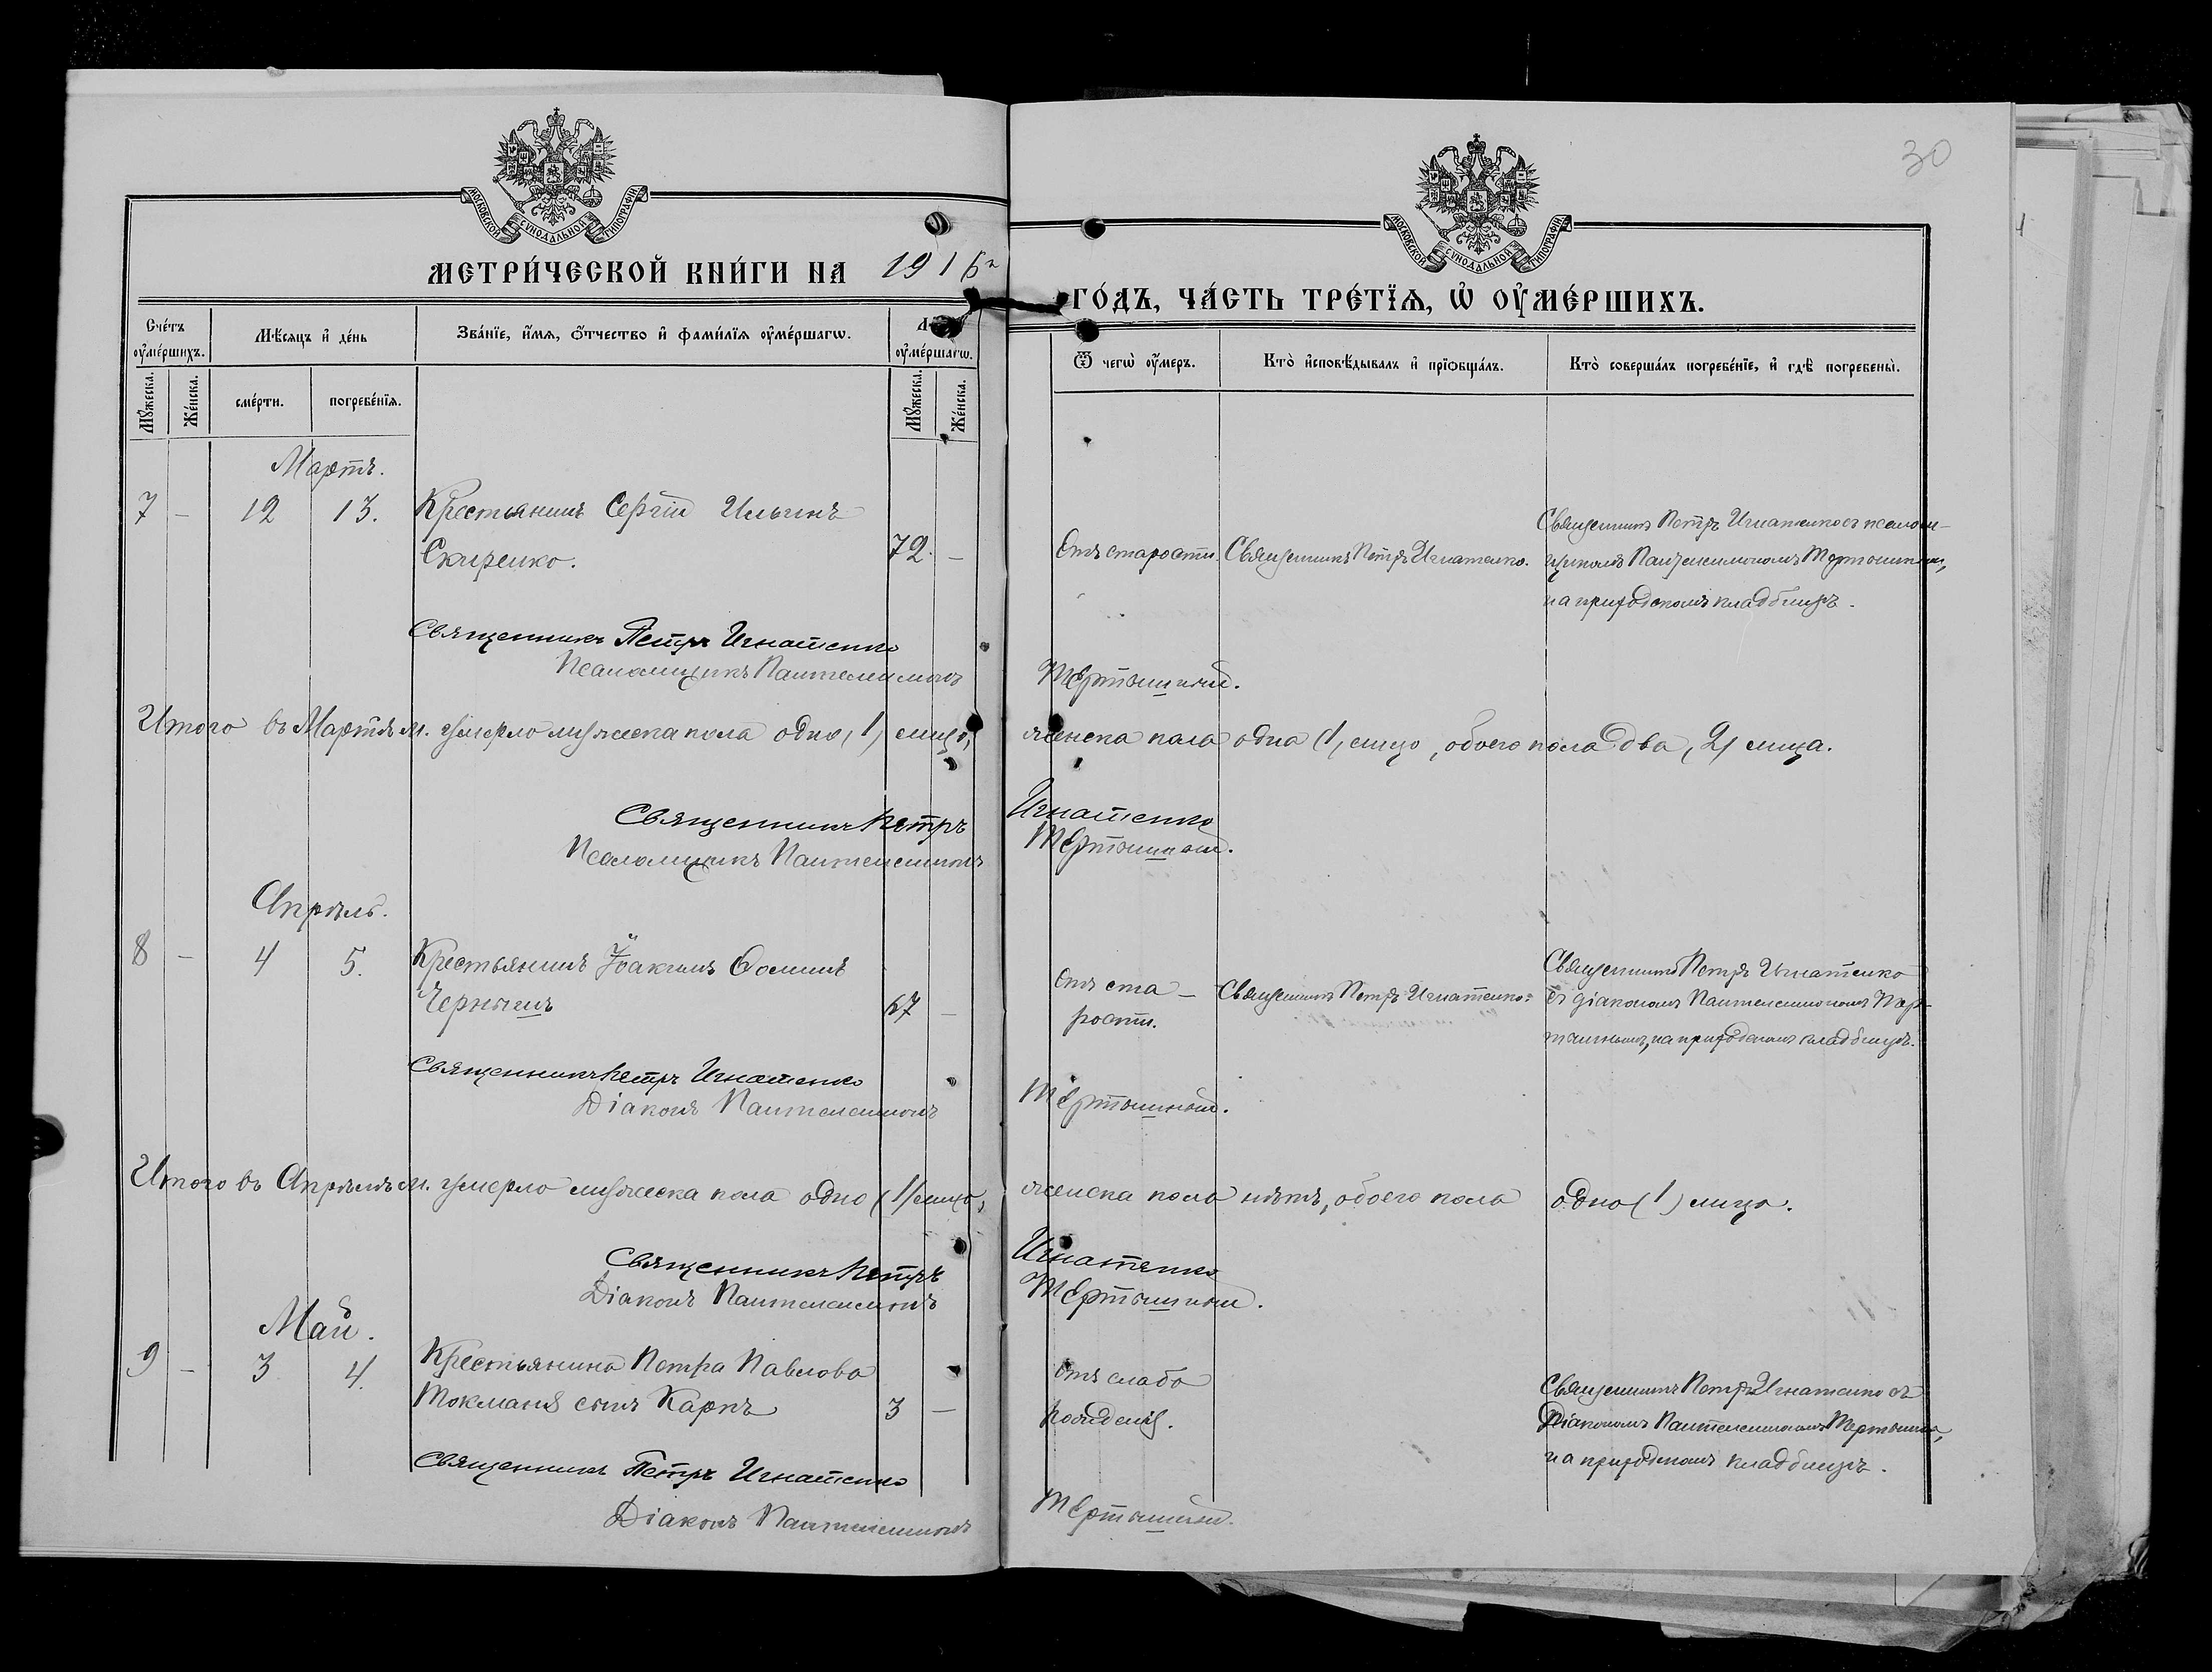 30
МОСКОВСКОЙ СѴНОДАЛЬНОЙ ТИПОГРАФІИ
МОСКОВСКОЙ СѴНОДАЛЬНОЙ ТИПОГРАФІИ
МЕТРИ́ЧЕСКОЙ КНИ́ГИ НА 191
ГО́ДЪ, ЧА́СТЬ ТРЕ́ТЇѦ, Ѡ҆ ОУ҆МЕ́РШИХЪ.
Сче́тъ оу҆ме́ршихъ.
Мѣ́сѧцъ и҆ де́нь
Зва́нїе, и҆́мѧ, ѻ҆́тчество и҆ фами́лїѧ оу҆ме́ршагѡ.
оу҆ме́ршагѡ.
Ѿ чегѡ̀ оу҆́меръ.
Кто̀ и҆сповѣ́дывалъ и҆ прїѻбща́лъ.
Кто̀ соверша́лъ погребе́нїе, и҆ гдѣ̀ погребены̀.
Мꙋ́жеска.
Же́нска.
сме́рти.
погребе́нїѧ.
Мꙋ́жеска.
Же́нска.
Мартъ.
7 – 12 13. Крестьянинъ Сергій Ильинъ
Скиренко. 72. –
Отъ старости. Священникъ Петръ Игнатенко.
Священникъ Петръ Игнатенко съ псалом-
щикомъ Пантелеимономъ
на приходскомъ кладбищѣ.
Священникъ Петръ Игнатенко
Псаломщикъ Пантелеимонъ Тертышный.
Итого въ Мартѣ м. умерло мужеска пола одно (1) лицо, женска пола одна (1) лицо, обоего пола два (2) лица.
Священникъ Петръ Игнатенко
Псаломщикъ Пантелеимонъ Тертышный.
Апрѣль.
8 – 4 5. Крестьянинъ Іоакимъ Ѳоминъ
Чернышъ 67 –
Отъ ста-
рости.
Священникъ Петръ Игнатенко.
Священникъ Петръ Игнатенко
съ діакономъ Пантелеимономъ Тер-
тышнымъ, на приходскомъ кладбищѣ.
Священникъ Петръ Игнатенко
Діаконъ Пантелеимонъ Тертышный.
Итого въ Апрѣлѣ м. умерло мужеска пола одно (1) лицо, женска пола нѣтъ, обоего пола одно (1) лицо.
Священникъ Петръ Игнатенко
Діаконъ Пантелеимонъ Тертышный.
Май.
9 – 3 4. Крестьянина Петра Павлова
Токманя сынъ Карпъ 3 –
Отъ слабо
Священникъ Петръ Игнатенко съ
Діакономъ Пантелеимономъ
на приходскомъ кладбищѣ.
Священникъ Петръ Игнатенко
Діаконъ Пантелеимонъ Тертышный.